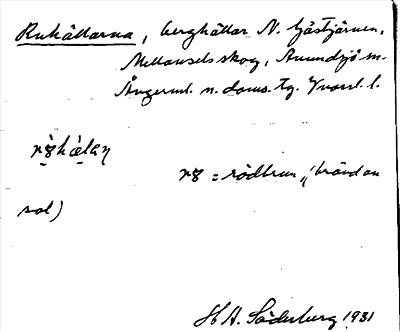 Ruhällarna, berghällar N. Gåstjärnen,
Mellansels skog, Anundsjö sn.
Ångerml. n. doms. tg. Vnorrl. l.
rödbrun, "bränd av
sol)
H.A. Söderberg 1931